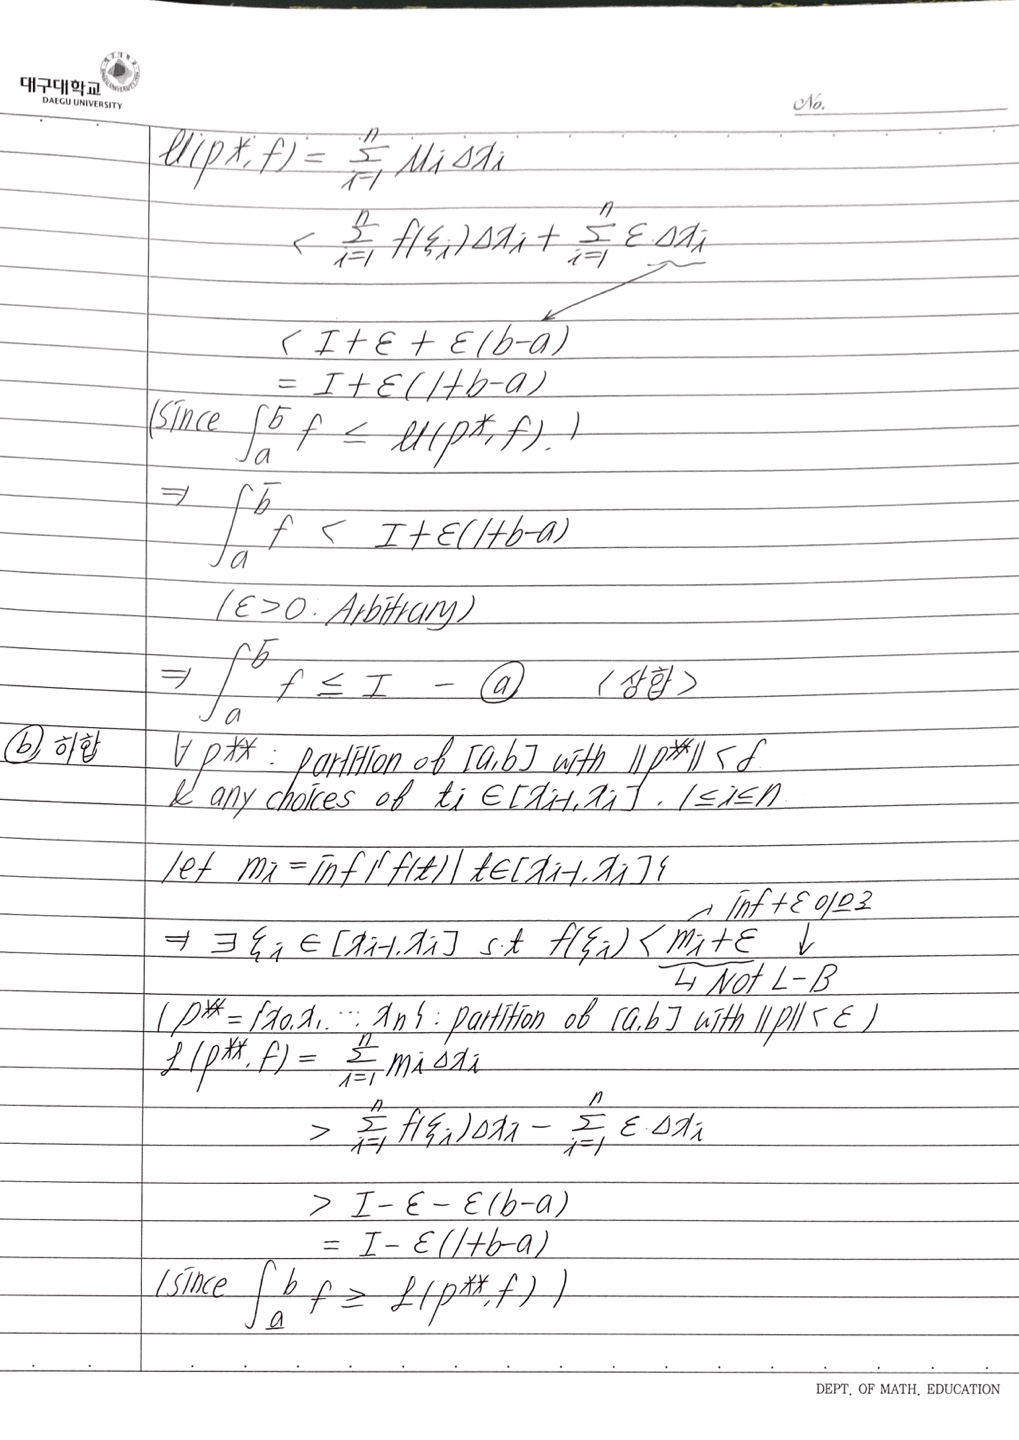 대구대학교
DAEGU UNIVERSITY
No.
U(p*, f) = Σ_{i=1}^{n} Mi Δxi
< Σ_{i=1}^{n} f(ξi)Δxi + Σ_{i=1}^{n} ε Δxi
< I + ε + ε(b-a)
= I + ε(1+b-a)
(Since ∫_a^{b̄} f ≤ U(p*, f).)
⇒ ∫_a^{b̄} f < I+ε(1+b-a)
(ε>0 : Arbitrary)
⇒ ∫_a^{b̄} f ≤ I - ⓐ <상합>
ⓑ 하합 ∀ p** : partition of [a,b] with ||p**|| < δ
& any choices of ti ∈ [xi-1, xi]. 1≤i≤n
let mi = inf{f(t) | t∈[xi-1, xi]}
inf+ε 이므로
⇒ ∃ ξi ∈ [xi-1, xi] s.t f(ξi) < mi+ε ↓
↳ Not L-B
(p** = {x0, x1, ⋯ xn} : partition of [a,b] with ||p|| < ε)
L(p**, f) = Σ_{i=1}^{n} mi Δxi
> Σ_{i=1}^{n} f(ξi)Δxi - Σ_{i=1}^{n} ε·Δxi
> I - ε - ε(b-a)
= I - ε(1+b-a)
(since ∫_a̲^b f ≥ L(p**, f))
DEPT. OF MATH. EDUCATION